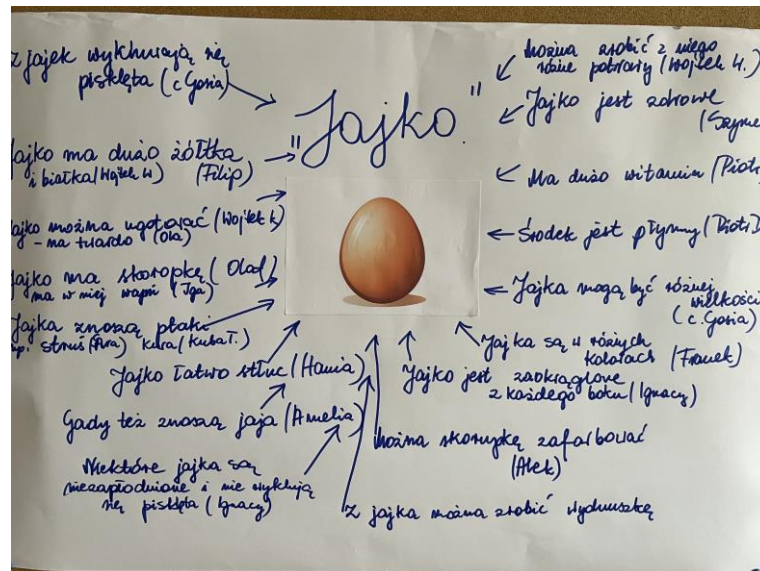 "Jajko"
z jajek wykluwają się
pisklęta (c. Gosia)
Jajko ma dużo żółtka
i białka (Wojtek W) (Filip)
Jajko można ugotować (Wojtek K)
- na twardo (Ola)
Jajko ma skorupkę (Olaf)
ma w niej wapń (Iga)
Jajka znoszą ptaki
np. struś kura (Kuba T.)
Jajko łatwo stłuc (Hania)
Gady też znoszą jaja (Amelia)
Niektóre jajka są
niezapłodnione i nie wyklują
się pisklęta (Ignacy)
można zrobić z niego
różne potrawy (Wojtek W.)
Jajko jest zdrowe
Ma dużo witamin (Piotr
Środek jest płynny (Piotr
Jajka mogą być różnej
wielkości
(c. Gosia)
Jajka są w różnych
kolorach (Franek)
Jajko jest zaokrąglone
z każdego boku (Ignacy)
można skorupkę zafarbować
(Alek)
z jajka można zrobić wydmuszkę